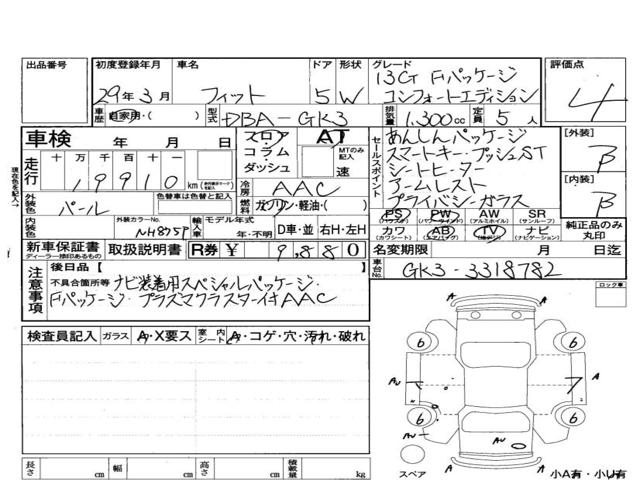 出品番号
初度登録年月
29年3月
車名
フィット
ドア
5
形状
W
グレード
13G Fパッケージ
コンフォートエディション
評価点
4
車歴
自家用・( )
型式
DBA-GK3
排気量
1.300cc
定員
5人
車検
年 月 日
スロア・コラム・ダッシュ
AT
MTのみ記入
速
セールスポイント
あんしんパッケージ
スマートキー・プッシュST
シートヒーター
アームレスト
プライバシーガラス
[外装]
B
[内装]
B
現在色を記入→
走行
十万 万 千 百 十
19910
km
冷房
AAC
外装色
パール
色替車は色替と記入
燃料
ガソリン・軽油・( )
PS
(パワステ)
PW
(パワーウインドウ)
AW
(アルミホイル)
SR
(サンルーフ)
カワ
(カワシート)
AB
(エアバッグ)
TV
(純正)
ナビ
(ナビゲーション)
純正品のみ丸印
内装色
外装カラーNo.
NH875P
輸入車
モデル年式
年・不明
D車・並
右H・左H
新車保証書
ディーラー捺印あるもの
取扱説明書
R券
¥
9,880
名変期限
月 日迄
注意事項
後日品【
不具合箇所等
ナビ装着用スペシャルパッケージ・
Fパッケージ・プラズマクラスター付AAC
車台No.
GK3-3318782
ロック車
検査員記入
ガラス
A・X要ス
室内シート
A・コゲ・穴・汚れ・破れ
6
6
6
6
A
A
A
A
スペア
小A有・小U有
長さ
cm
幅
cm
高さ
cm
積載量
kg